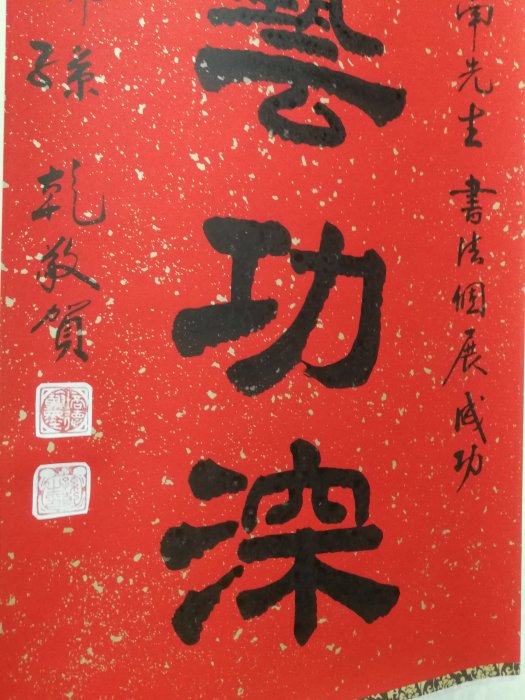 先生書法個展成功
藝功深
孫乾敬賀